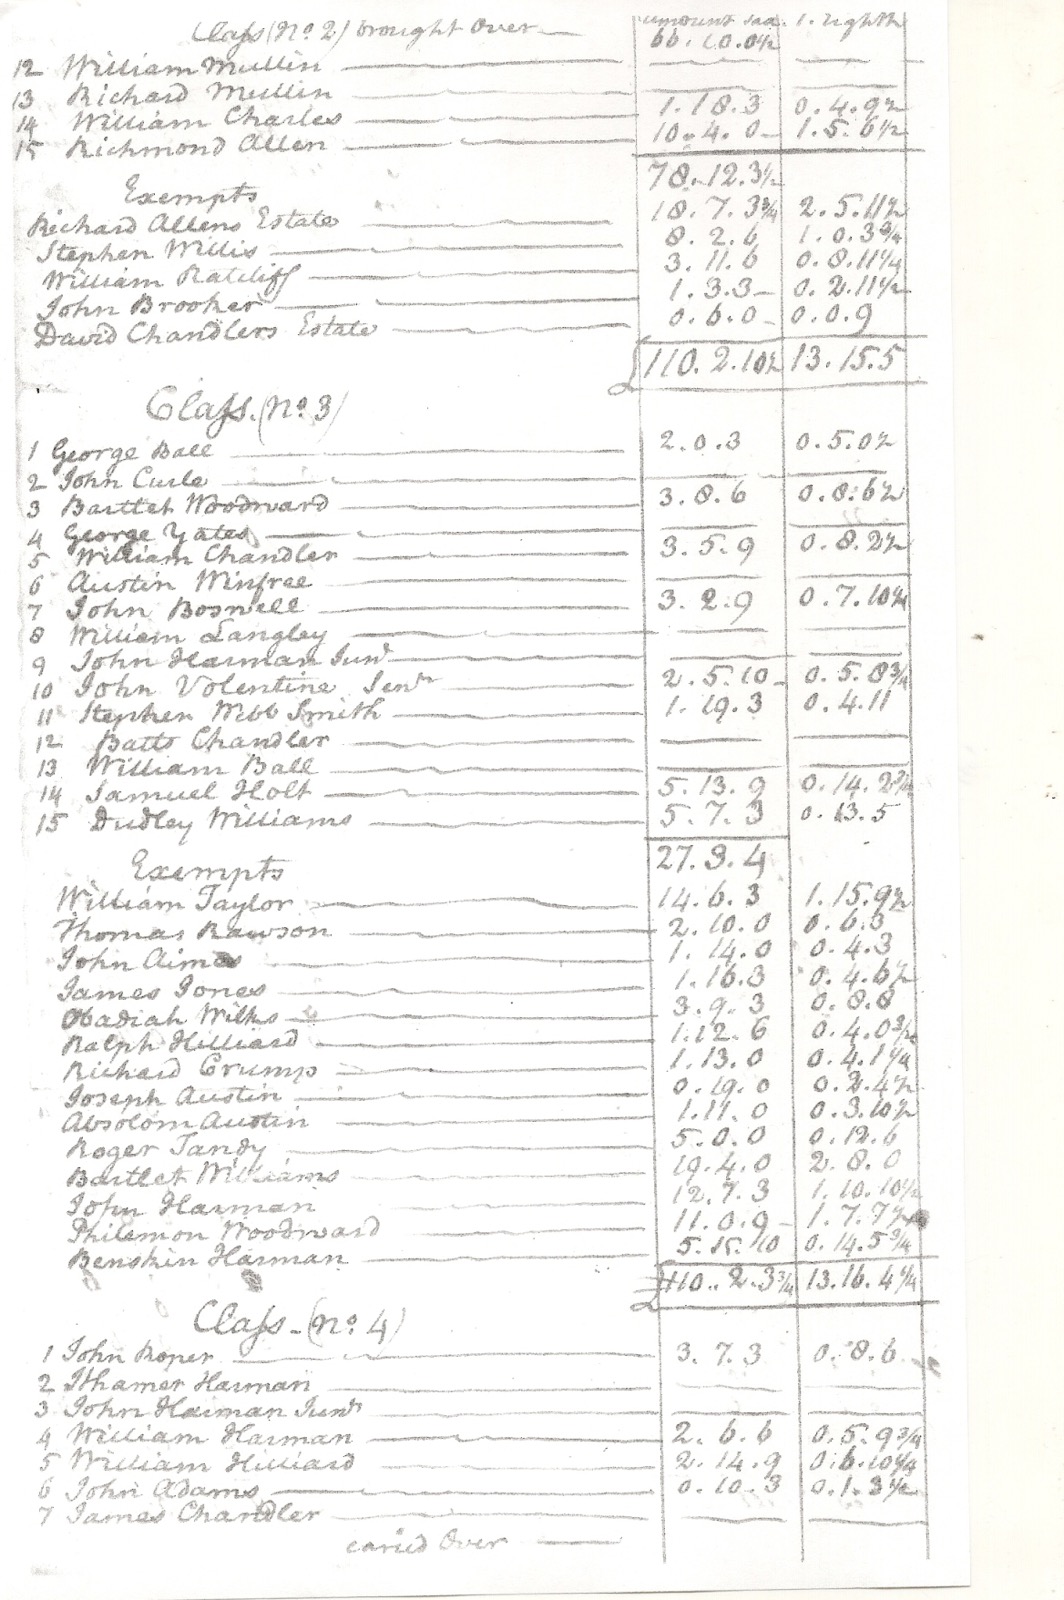 Class (No. 2) brought Over — amount Sad. 1. Eighth
66.10.0½
12 William Mullin
13 Richard Mullin
14 William Charles 1.18.3 0.4.9½
15 Richmond Allen 10.4.0 1.5.6½
78.12.3½
Exempts
Richard Allens Estate 18.7.3¾ 2.5.11½
Stephen Willis 8.2.6 1.0.3¾
William Ratcliff 3.11.6 0.8.11¼
John Brooker 1.3.3 0.2.11½
David Chandlers Estate 0.6.0 0.0.9
£110.2.10½ 13.15.5
Class (No. 3)
1 George Ball 2.0.3 0.5.0½
2 John Curle
3 Bartlet Woodward 3.8.6 0.8.6½
4 George Yates
5 William Chandler 3.5.9 0.8.2½
6 Austin Winfree
7 John Boswell 3.2.9 0.7.10¼
8 William Langley
9 John Harman Junr
10 John Volentine Senr 2.5.10 0.5.8¾
11 Stephen Webb Smith 1.19.3 0.4.11
12 Batts Chandler
13 William Ball
14 Samuel Holt 5.13.9 0.14.2¾
15 Dudley Williams 5.7.3 0.13.5
27.3.4
Exempts
William Taylor 14.6.3 1.15.9½
Thomas Rawson 2.10.0 0.6.3
John Aimes 1.14.0 0.4.3
James Jones 1.16.3 0.4.6½
Obadiah Wilks 3.9.3 0.8.8
Ralph Hilliard 1.12.6 0.4.0¾
Richard Crump 1.13.0 0.4.1¼
Joseph Austin 0.19.0 0.2.4½
Absolom Austin 1.11.0 0.3.10½
Roger Tandy 5.0.0 0.12.6
Bartlet Williams 19.4.0 2.8.0
John Harman 12.7.3 1.10.10½
Philemon Woodward 11.0.9 1.7.7½
Benskin Harman 5.15.10 0.14.5¾
£110.2.3¾ 13.16.4¼
Class (No. 4)
1 John Roper 3.7.3 0.8.6
2 Ithamer Harman
3 John Harman Junr
4 William Harman 2.6.6 0.5.9¾
5 William Hilliard 2.14.9 0.6.10¼
6 John Adams 0.10.3 0.1.3½
7 James Chandler
caried Over